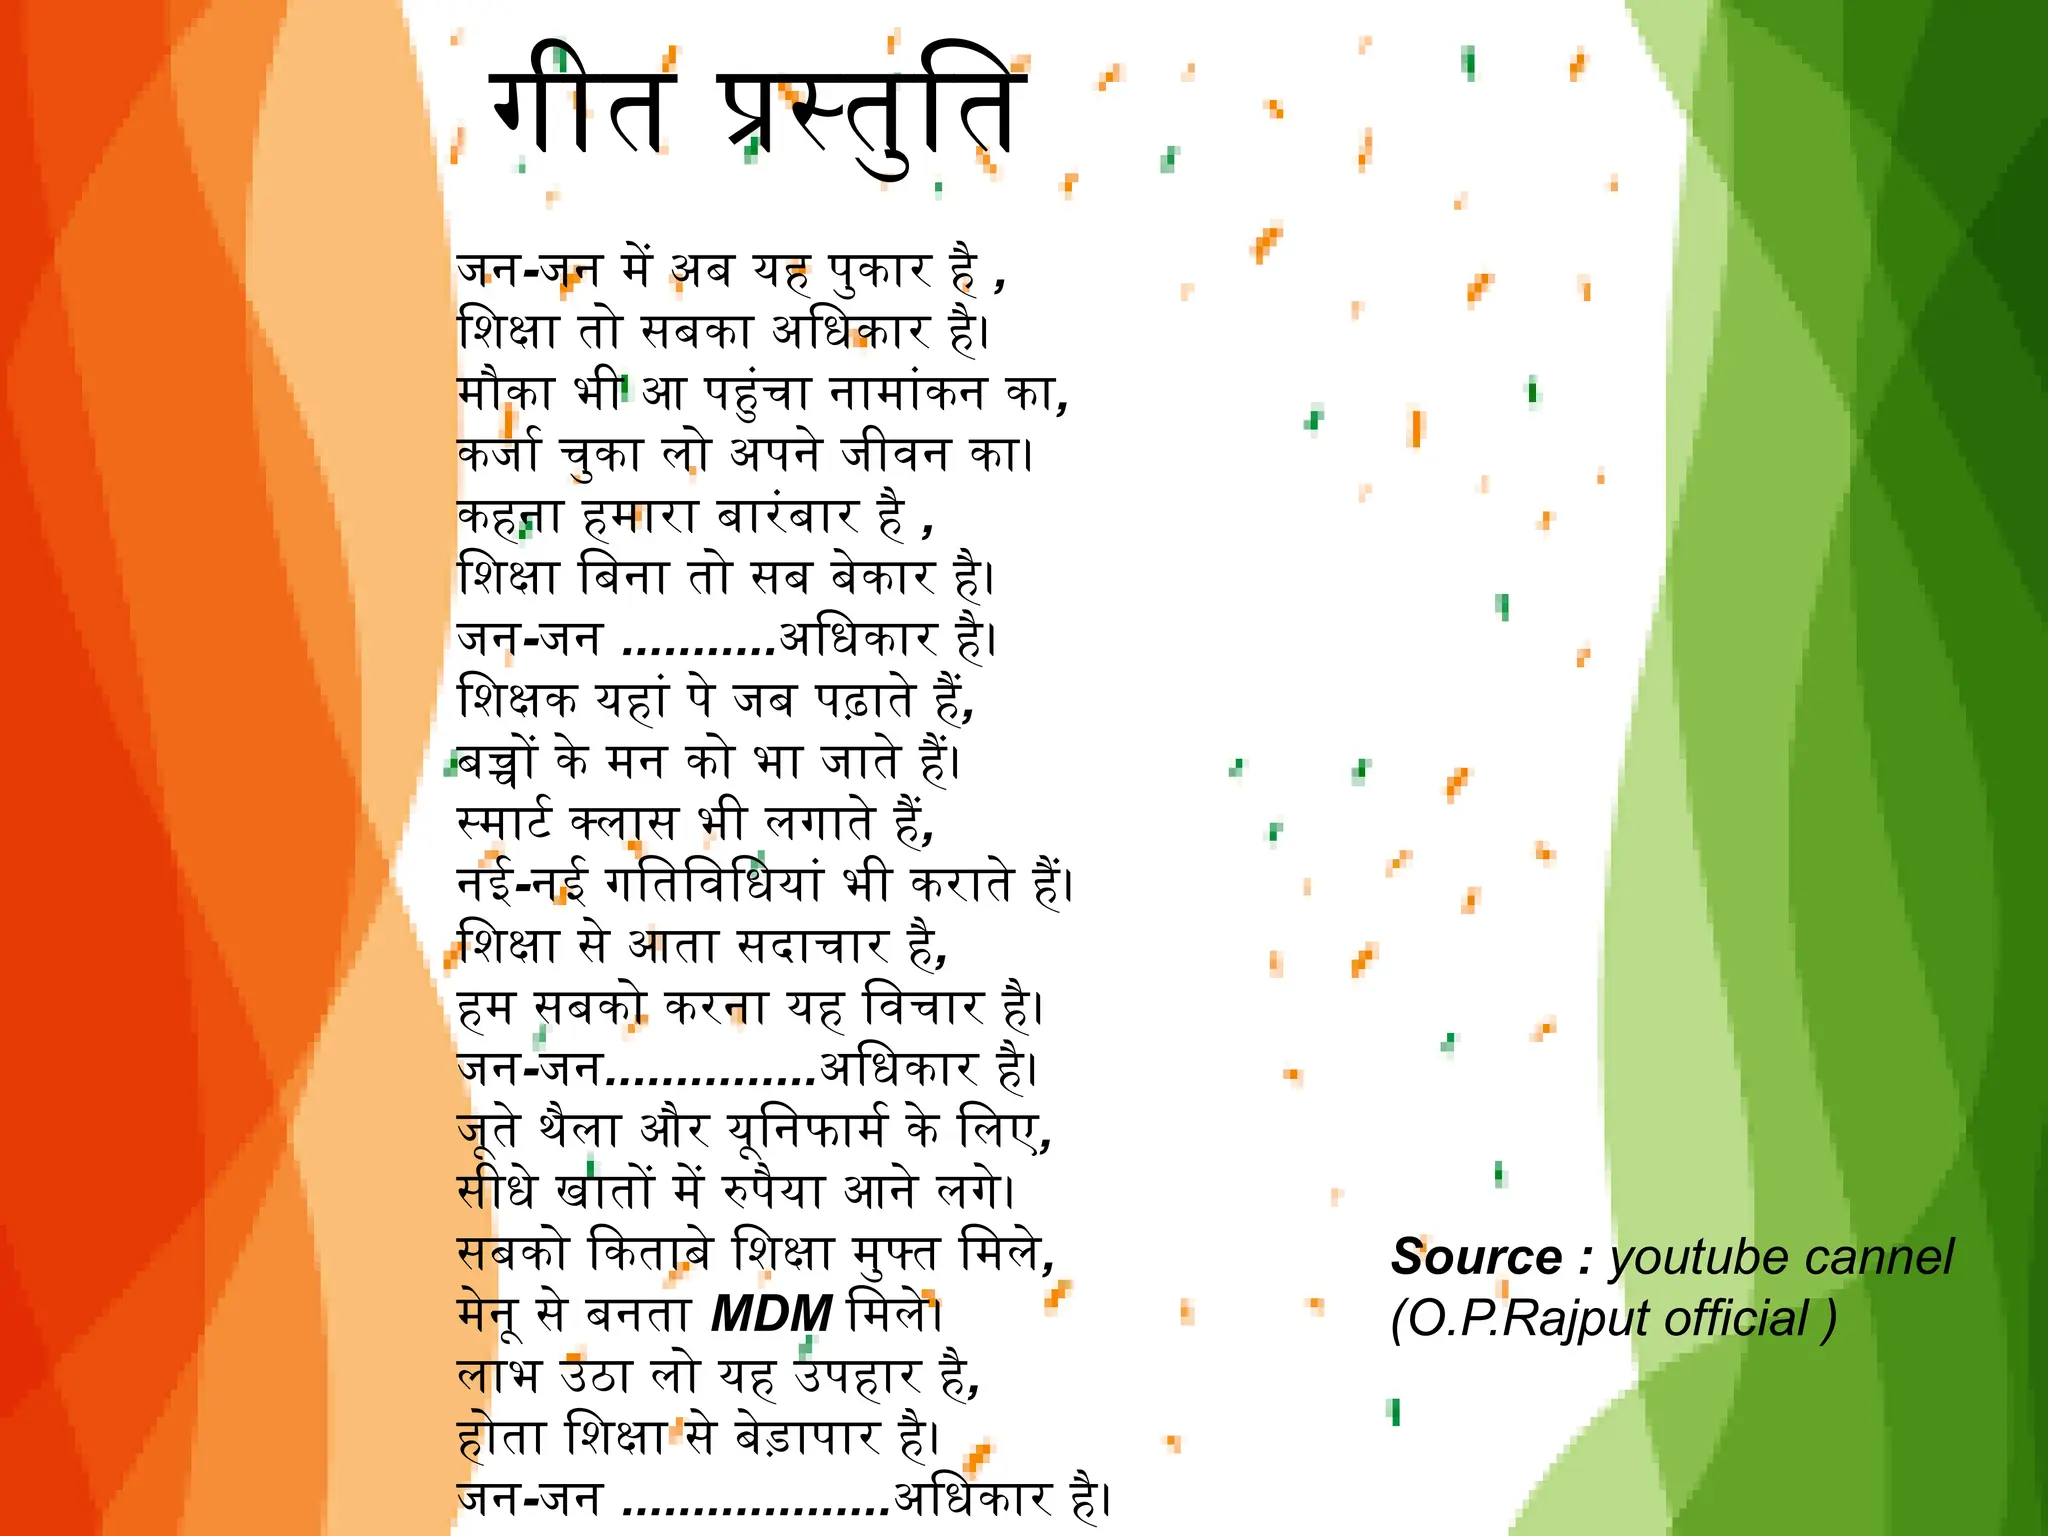 गीत प्रस्तुति
जन-जन में अब यह पुकार है ,
शिक्षा तो सबका अधिकार है।
मौका भी आ पहुंचा नामांकन का,
कर्जा चुका लो अपने जीवन का।
कहना हमारा बारंबार है ,
शिक्षा बिना तो सब बेकार है।
जन-जन ...........अधिकार है।
शिक्षक यहां पे जब पढ़ाते हैं,
बच्चों के मन को भा जाते हैं।
स्मार्ट क्लास भी लगाते हैं,
नई-नई गतिविधियां भी कराते हैं।
शिक्षा से आता सदाचार है,
हम सबको करना यह विचार है।
जन-जन...............अधिकार है।
जूते थैला और यूनिफार्म के लिए,
सीधे खातों में रुपैया आने लगे।
सबको किताबे शिक्षा मुफ्त मिले,
मेनू से बनता MDM मिले।
लाभ उठा लो यह उपहार है,
होता शिक्षा से बेड़ापार है।
जन-जन ...................अधिकार है।
Source : youtube cannel
(O.P.Rajput official )